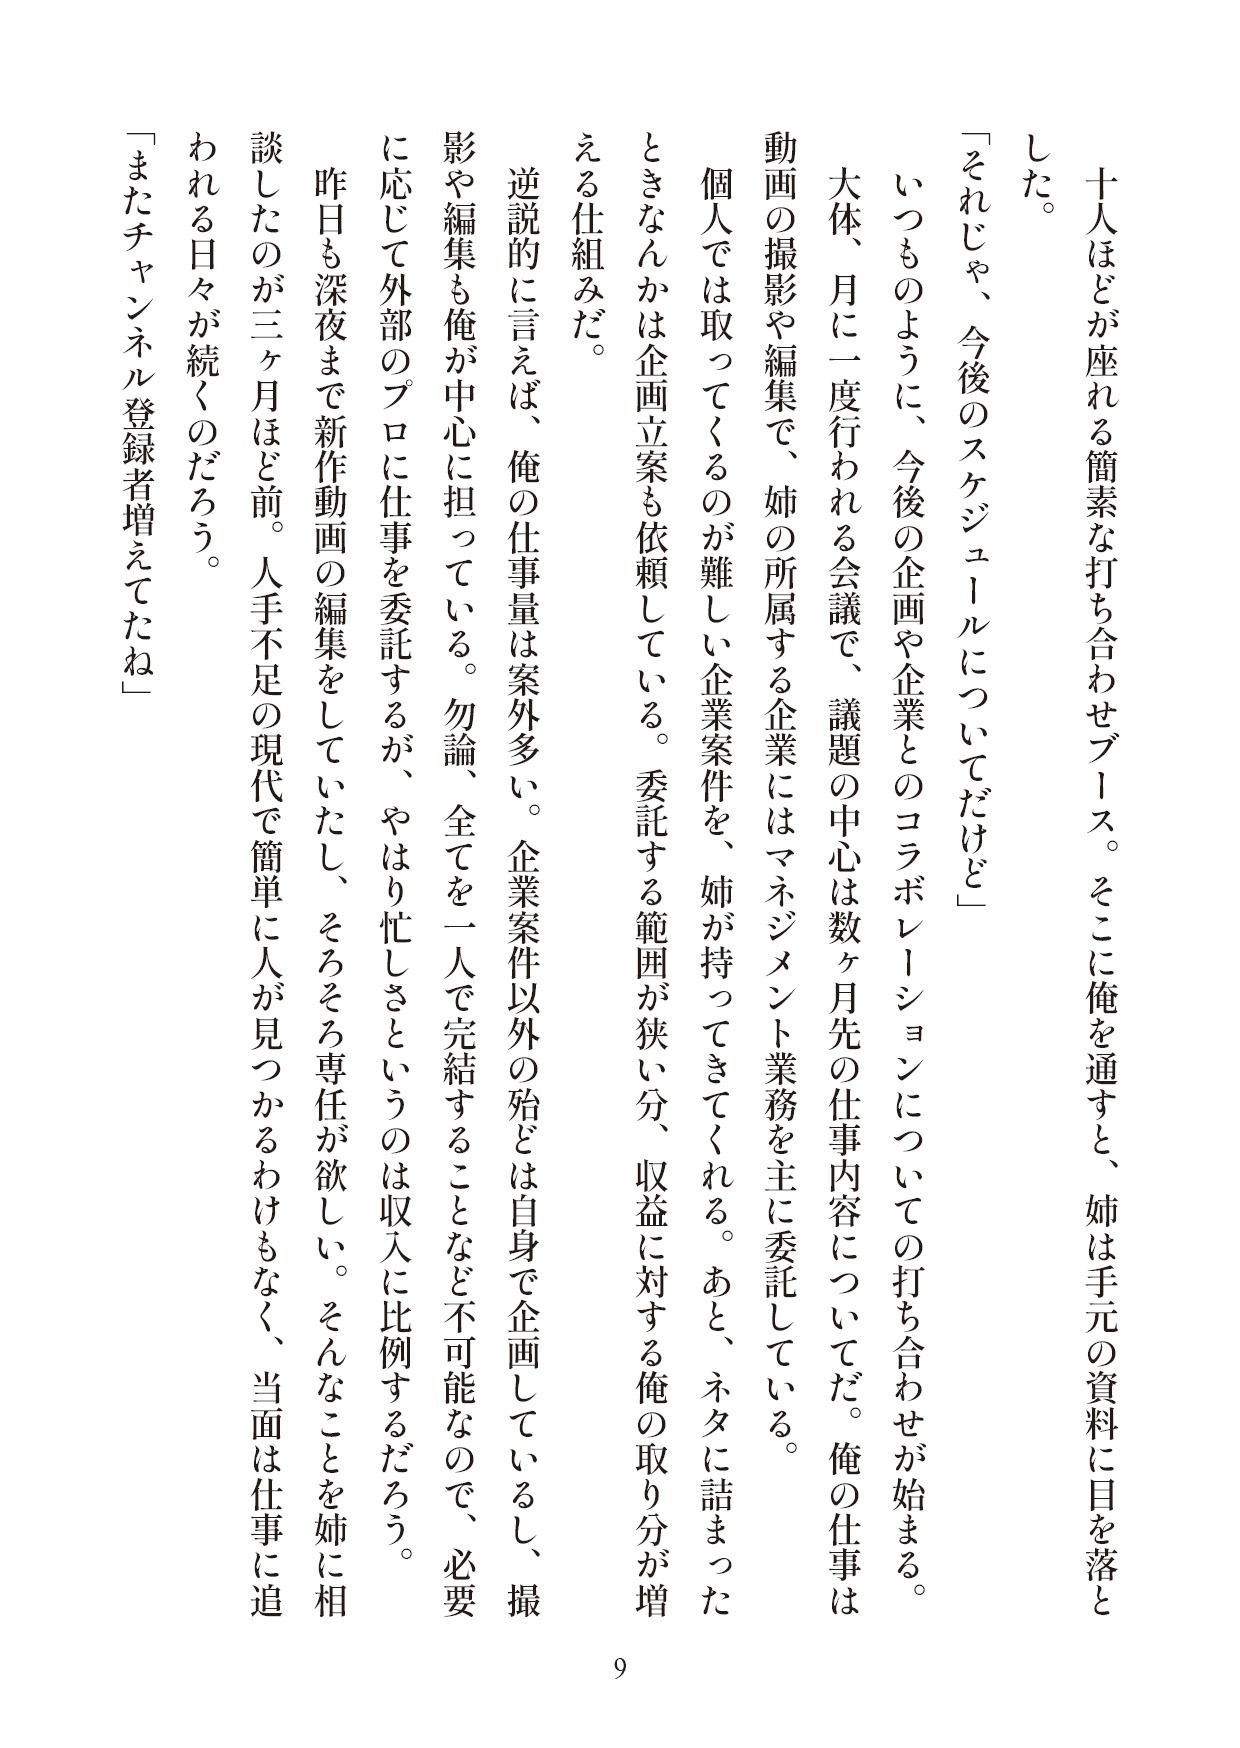 十人ほどが座れる簡素な打ち合わせブース。そこに俺を通すと、姉は手元の資料に目を落と
した。
「それじゃ、今後のスケジュールについてだけど」
いつものように、今後の企画や企業とのコラボレーションについての打ち合わせが始まる。
大体、月に一度行われる会議で、議題の中心は数ヶ月先の仕事内容についてだ。俺の仕事は
動画の撮影や編集で、姉の所属する企業にはマネジメント業務を主に委託している。
個人では取ってくるのが難しい企業案件を、姉が持ってきてくれる。あと、ネタに詰まった
ときなんかは企画立案も依頼している。委託する範囲が狭い分、収益に対する俺の取り分が増
える仕組みだ。
逆説的に言えば、俺の仕事量は案外多い。企業案件以外の殆どは自身で企画しているし、撮
影や編集も俺が中心に担っている。勿論、全てを一人で完結することなど不可能なので、必要
に応じて外部のプロに仕事を委託するが、やはり忙しさというのは収入に比例するだろう。
昨日も深夜まで新作動画の編集をしていたし、そろそろ専任が欲しい。そんなことを姉に相
談したのが三ヶ月ほど前。人手不足の現代で簡単に人が見つかるわけもなく、当面は仕事に追
われる日々が続くのだろう。
「またチャンネル登録者増えてたね」
9